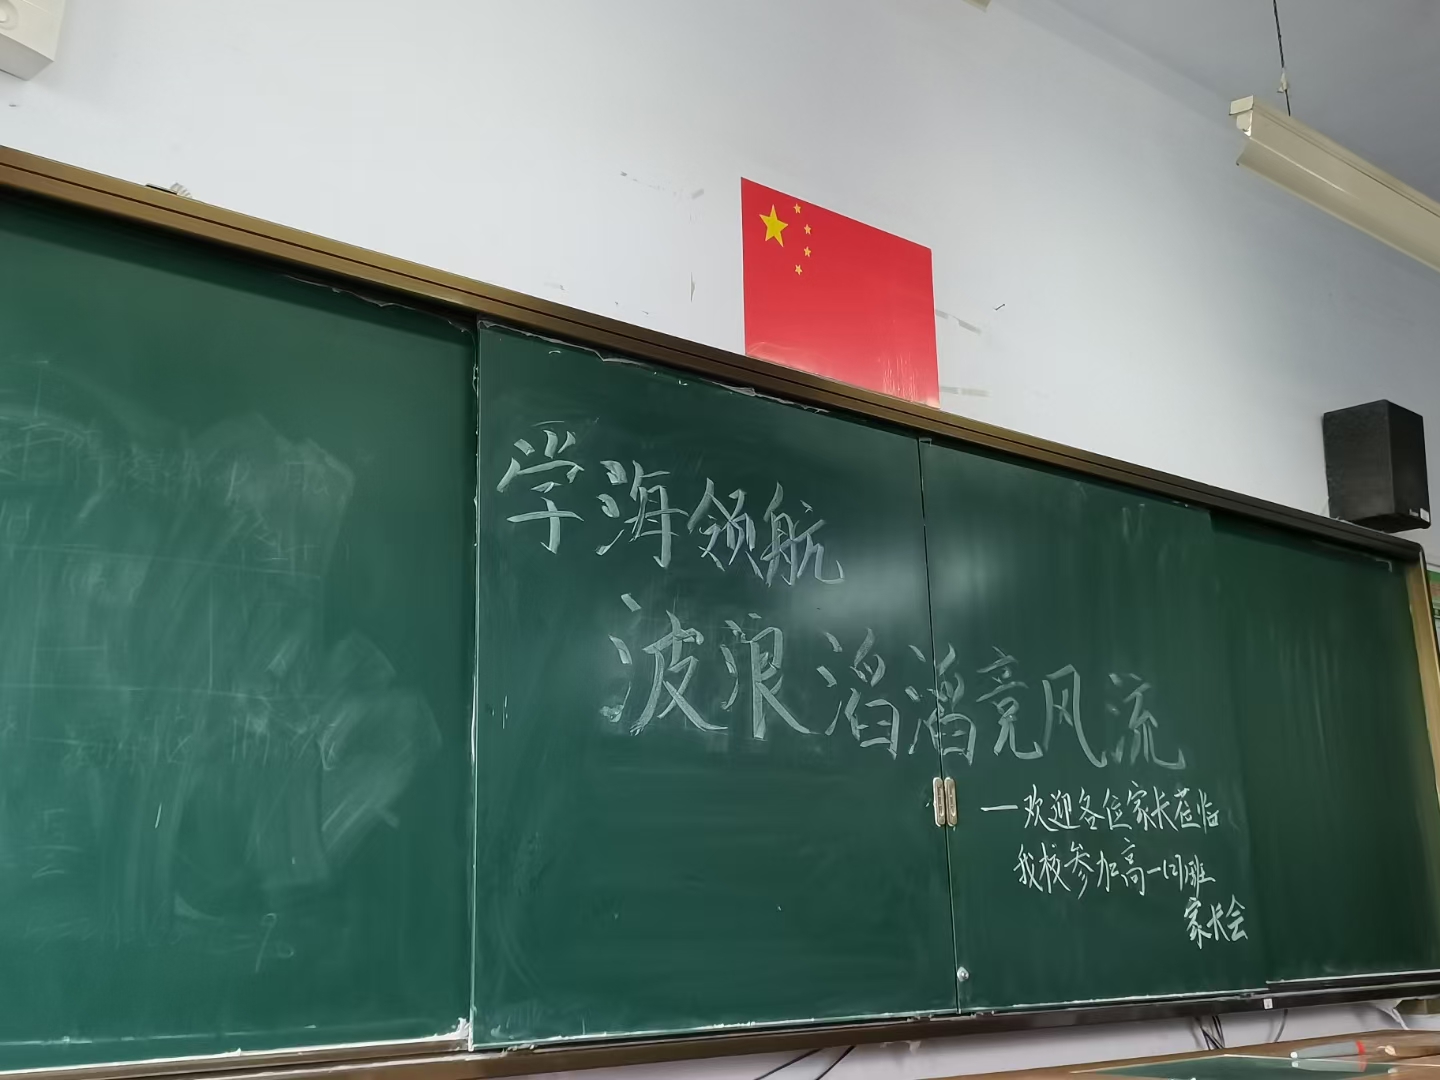 学海领航
波浪滔滔竞风流
一欢迎各位家长莅临
我校参加高一(2)班
家长会